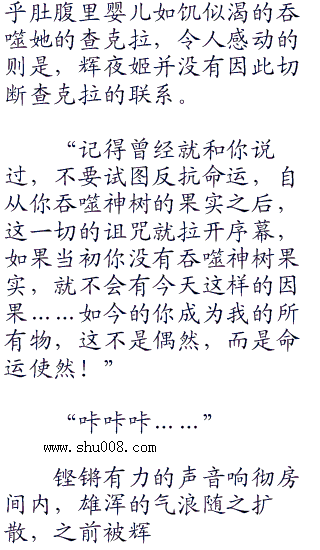 乎肚腹里婴儿如饥似渴的吞
噬她的查克拉，令人感动的
则是，辉夜姬并没有因此切
断查克拉的联系。
“记得曾经就和你说
过，不要试图反抗命运，自
从你吞噬神树的果实之后，
这一切的诅咒就拉开序幕，
如果当初你没有吞噬神树果
实，就不会有今天这样的因
果……如今的你成为我的所
有物，这不是偶然，而是命
运使然！”
“咔咔咔……”
www.shu008.com
铿锵有力的声音响彻房
间内，雄浑的气浪随之扩
散，之前被辉